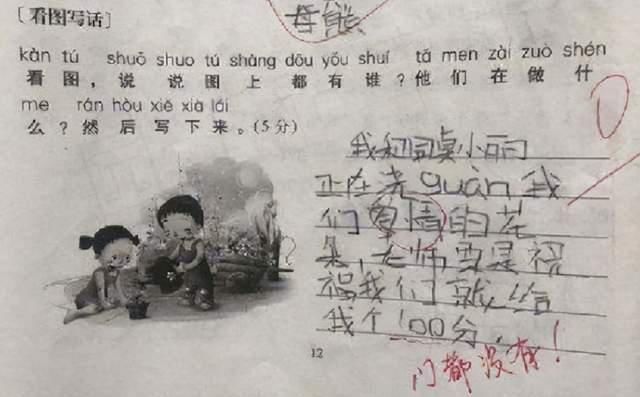 母熊
[看图写话]
kàn tú shuō shuo tú shàng dōu yǒu shuí tā men zài zuò shén
看图，说说图上都有谁？他们在做什
me rán hòu xiě xià lái
么？然后写下来。(5分)
0
我和同桌小丽
正在浇guàn我
们情的花
朵，老师要是祝
福我们就给
我个100分.
12
门都没有！